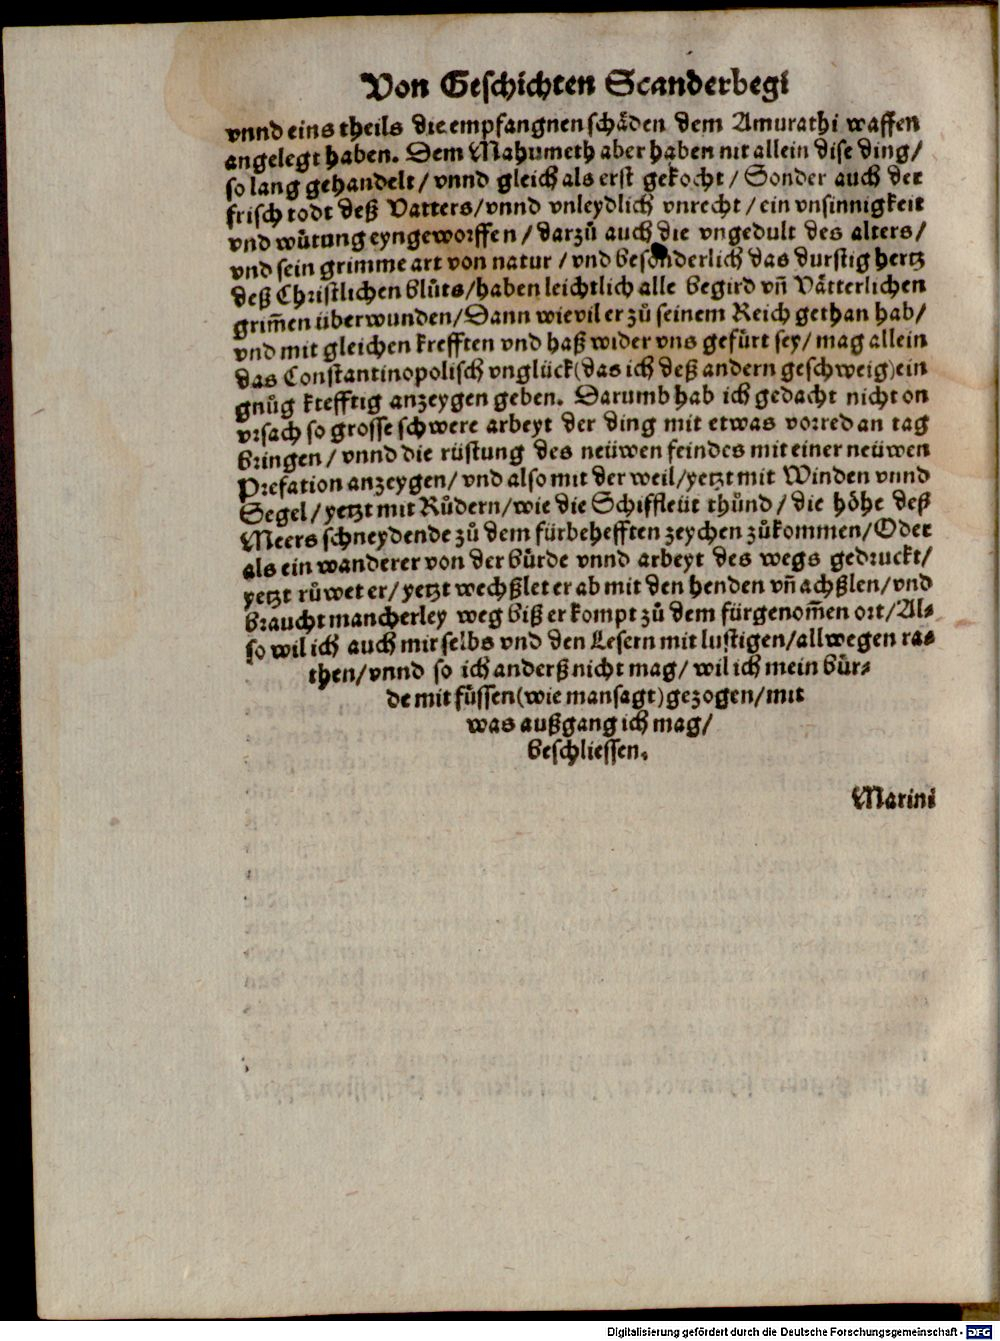 Von Geschichten Scanderbegi
vnnd eins theils die empfangnen schåden dem Amurathi waffen
angelegt haben. Dem Mahumeth aber haben nit allein dise ding/
so lang gehandelt/ vnnd gleich als erst gekocht/ Sonder auch der
frisch todt deß Vatters/vnnd vnleydlich vnrecht/ein vnsinnigkeit
vnd wůtung eyngeworffen/ darzů auch die vngedult des alters/
vnd sein grimme art von natur/ vnd besonderlich das durstig hertz
deß Christlichen blůts/haben leichtlich alle begird vñ Våtterlichen
grim̃en überwunden/Dann wievil er zů seinem Reich gethan hab/
vnd mit gleichen krefften vnd haß wider vns gefürt sey/ mag allein
das Constantinopolisch vnglück(das ich deß andern geschweig)ein
gnůg krefftig anzeygen geben. Darumb hab ich gedacht nicht on
vrsach so grosse schwere arbeyt der ding mit etwas vorred an tag
bringen/ vnnd die rüstung des neüwen feindes mit einer neüwen
Prefation anzeygen/ vnd also mit der weil/yetzt mit Winden vnnd
Segel/yetzt mit Růdern/wie die Schiffleüt thůnd/ die höhe deß
Meers schneydende zů dem fürbehefften zeychen zůkommen/Oder
als ein wanderer von der bürde vnnd arbeyt des wegs gedruckt/
yetzt růwet er/ yetzt wechßlet er ab mit den henden vñ achßlen/vnd
braucht mancherley weg biß er kompt zů dem fürgenom̃en ort/Al-
so wil ich auch mir selbs vnd den Lesern mit lustigen/allwegen ra-
then/vnnd so ich anderß nicht mag/ wil ich mein bür-
de mit füssen(wie man sagt)gezogen/mit
was außgang ich mag/
beschliessen.
Marini
Digitalisierung gefördert durch die Deutsche Forschungsgemeinschaft - DFG